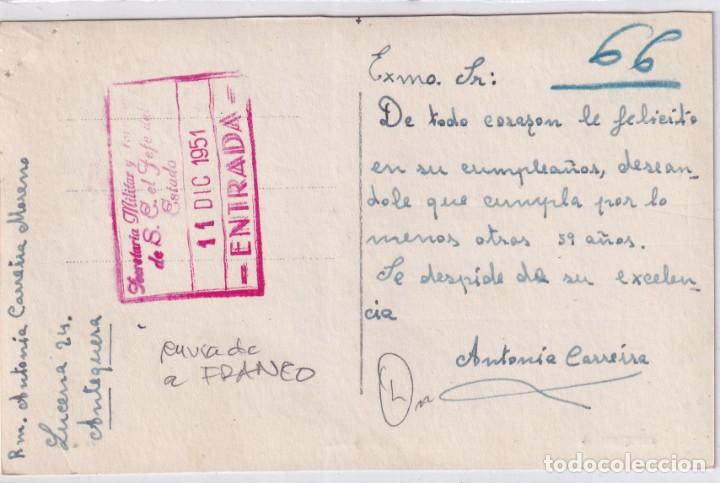 66
Exmo. Sr:
De todo corazon le felicito
en su cumpleaños, desean-
dole que cumpla por lo
menos otros 59 años.
Se despide de su excelen-
cia
Antonia Carreira
Rm. Antonia Carreira Moreno
Lucena 24.
Antequera
Secretaría Militar y
de S. E. el Jefe del
Estado
11 DIC 1951
— ENTRADA —
enviada
a FRANCO
todocoleccion
todocoleccion.net